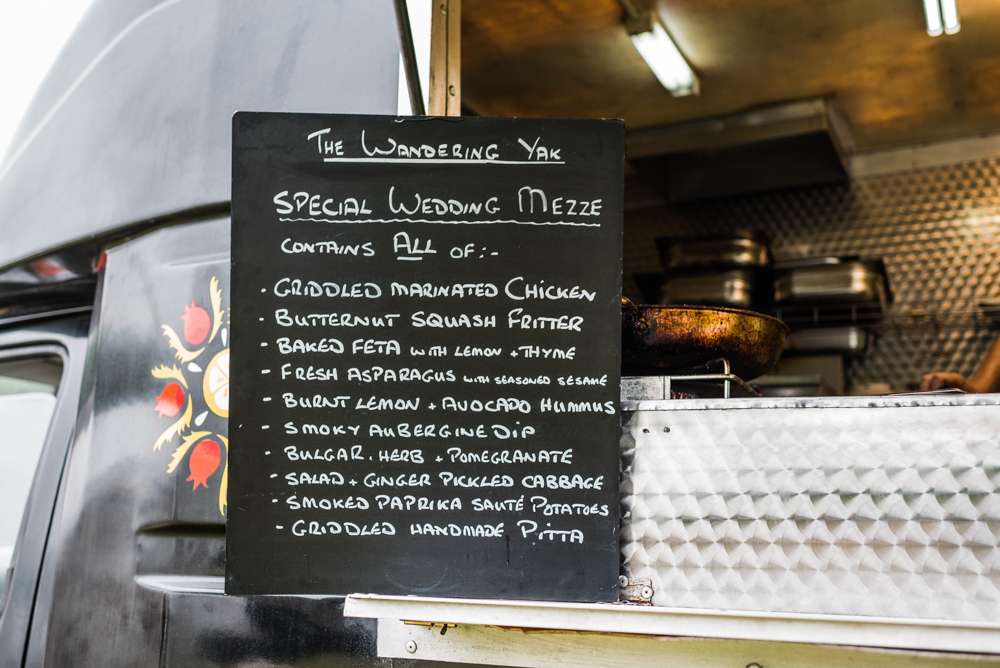 THE WANDERING YAK
SPECIAL WEDDING MEZZE
CONTAINS ALL OF:-
· GRIDDLED MARINATED CHICKEN
· BUTTERNUT SQUASH FRITTER
- BAKED FETA WITH LEMON + THYME
- FRESH ASPARAGUS WITH SEASONED SESAME
- BURNT LEMON + AVOCADO HUMMUS
- SMOKY AUBERGINE DIP
- BULGAR. HERB + POMEGRANATE
- SALAD + GINGER PICKLED CABBAGE
- SMOKED PAPRIKA SAUTÉ POTATOES
- GRIDDLED HANDMADE PITTA